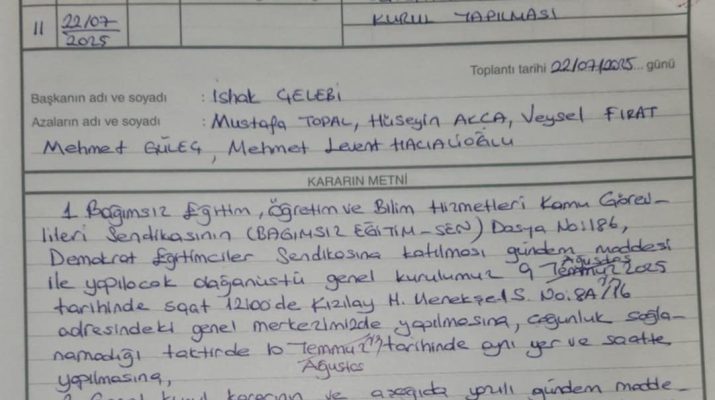 KURUL YAPILMASI
11 22/07/2025
Toplantı tarihi 22/07/2025... günü
Başkanın adı ve soyadı : İshak ÇELEBİ
Azaların adı ve soyadı : Mustafa TOPAL, Hüseyin AKCA, Veysel FIRAT
Mehmet GÜLEÇ, Mehmet Levent HACIALİOĞLU
KARARIN METNİ
1 Bağımsız Eğitim, Öğretim ve Bilim Hizmetleri Kamu Görev-
lileri Sendikasının (BAĞIMSIZ EĞİTİM-SEN) Dosya No:1186,
Demokrat Eğitimciler Sendikasına katılması gündem maddesi
ile yapılacak olağanüstü genel kurulumuz 9 Temmuz Ağustos 2025
tarihinde saat 12:00'de Kızılay M. Menekşe1 S. No:8A/76
adresindeki genel merkezimizde yapılmasına, çoğunluk sağla-
namadığı taktirde 10 Temmuz tarihinde aynı yer ve saatte
Ağustos
yapılmasına,
ve aşağıda yazılı gündem madde-